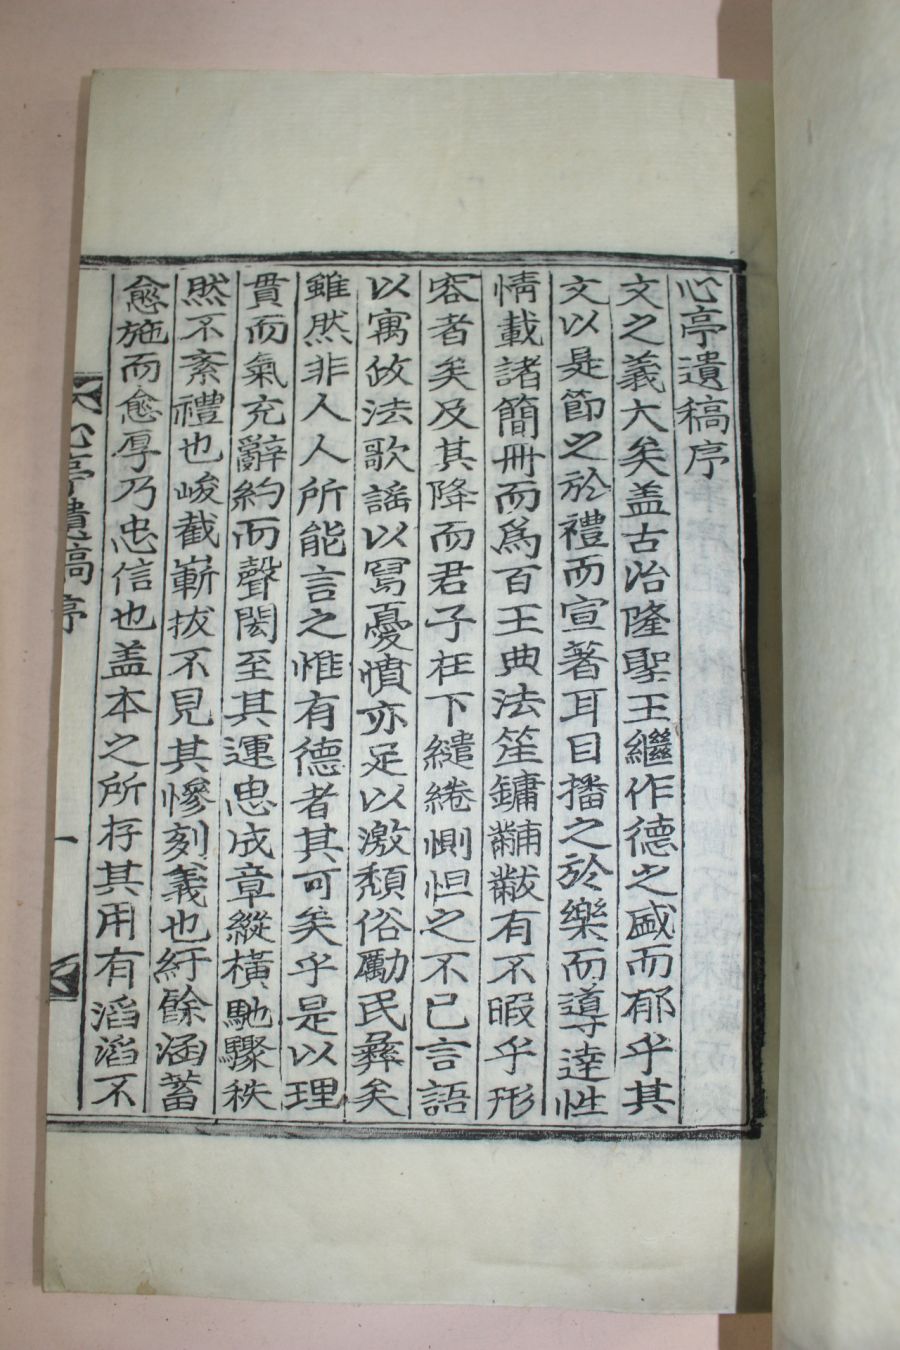 心亭遺稿序
文之義大矣盖古治隆聖王繼作德之盛而郁乎其
文以是節之於禮而宣著耳目播之於樂而導達性
情載諸簡冊而爲百王典法笙鏞黼黻有不暇乎形
容者矣及其降而君子在下繾綣惻怛之不已言語
以寓攸法歌謠以寫憂憤亦足以激頹俗勵民彝矣
雖然非人人所能言之惟有德者其可矣乎是以理
貫而氣充辭約而聲閎至其運思成章縱橫馳驟秩
然不紊禮也峻截嶄拔不見其慘刻義也紆餘涵蓄
愈施而愈厚乃忠信也盖本之所存其用有滔滔不
心亭遺稿序
一